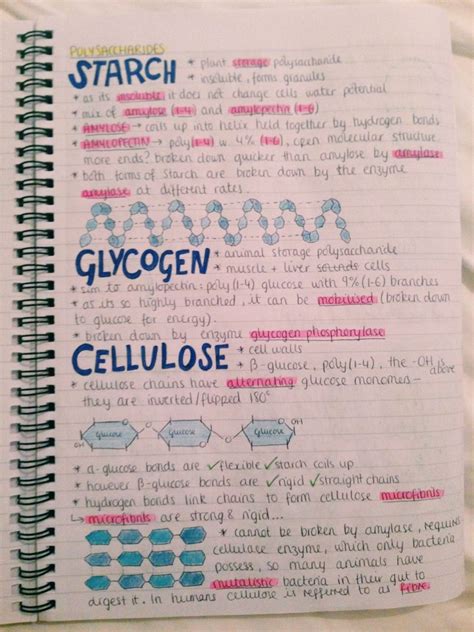 POLYSACCHARIDES
STARCH * plant storage polysaccharide
* insoluble, forms granules
* as its insoluble it does not change cells water potential
* mix of amylose (1-4) and amylopectin (1-6)
* AMYLOSE → coils up into helix held together by hydrogen bonds
* AMYLOPECTIN → poly(1-4) w. 4% (1-6), open molecular structure.
more ends? broken down quicker than amylose by amylase
* both forms of starch are broken down by the enzyme
amylase at different rates.
GLYCOGEN * animal storage polysaccharide
* muscle + liver cells
* sim to amylopectin: poly(1-4) glucose with 9% (1-6) branches
* as its so highly branched, it can be mobilised (broken down
to glucose for energy).
* broken down by enzyme glycogen phosphorylase
CELLULOSE * cell walls
* β-glucose, poly(1-4), the -OH is above
* cellulose chains have alternating glucose monomers -
they are inverted/flipped 180°
OH
glucose O glucose O glucose
OH
* α-glucose bonds are ✓flexible ✓starch coils up
* however β-glucose bonds are ✓rigid ✓straight chains
* hydrogen bonds link chains to form cellulose microfibrils
↳ microfibrils are strong & rigid...
* cannot be broken by amylase, requires
cellulase enzyme, which only bacteria
possess, so many animals have
mutalistic bacteria in their gut to
digest it. In humans cellulose is reffered to as fibre.